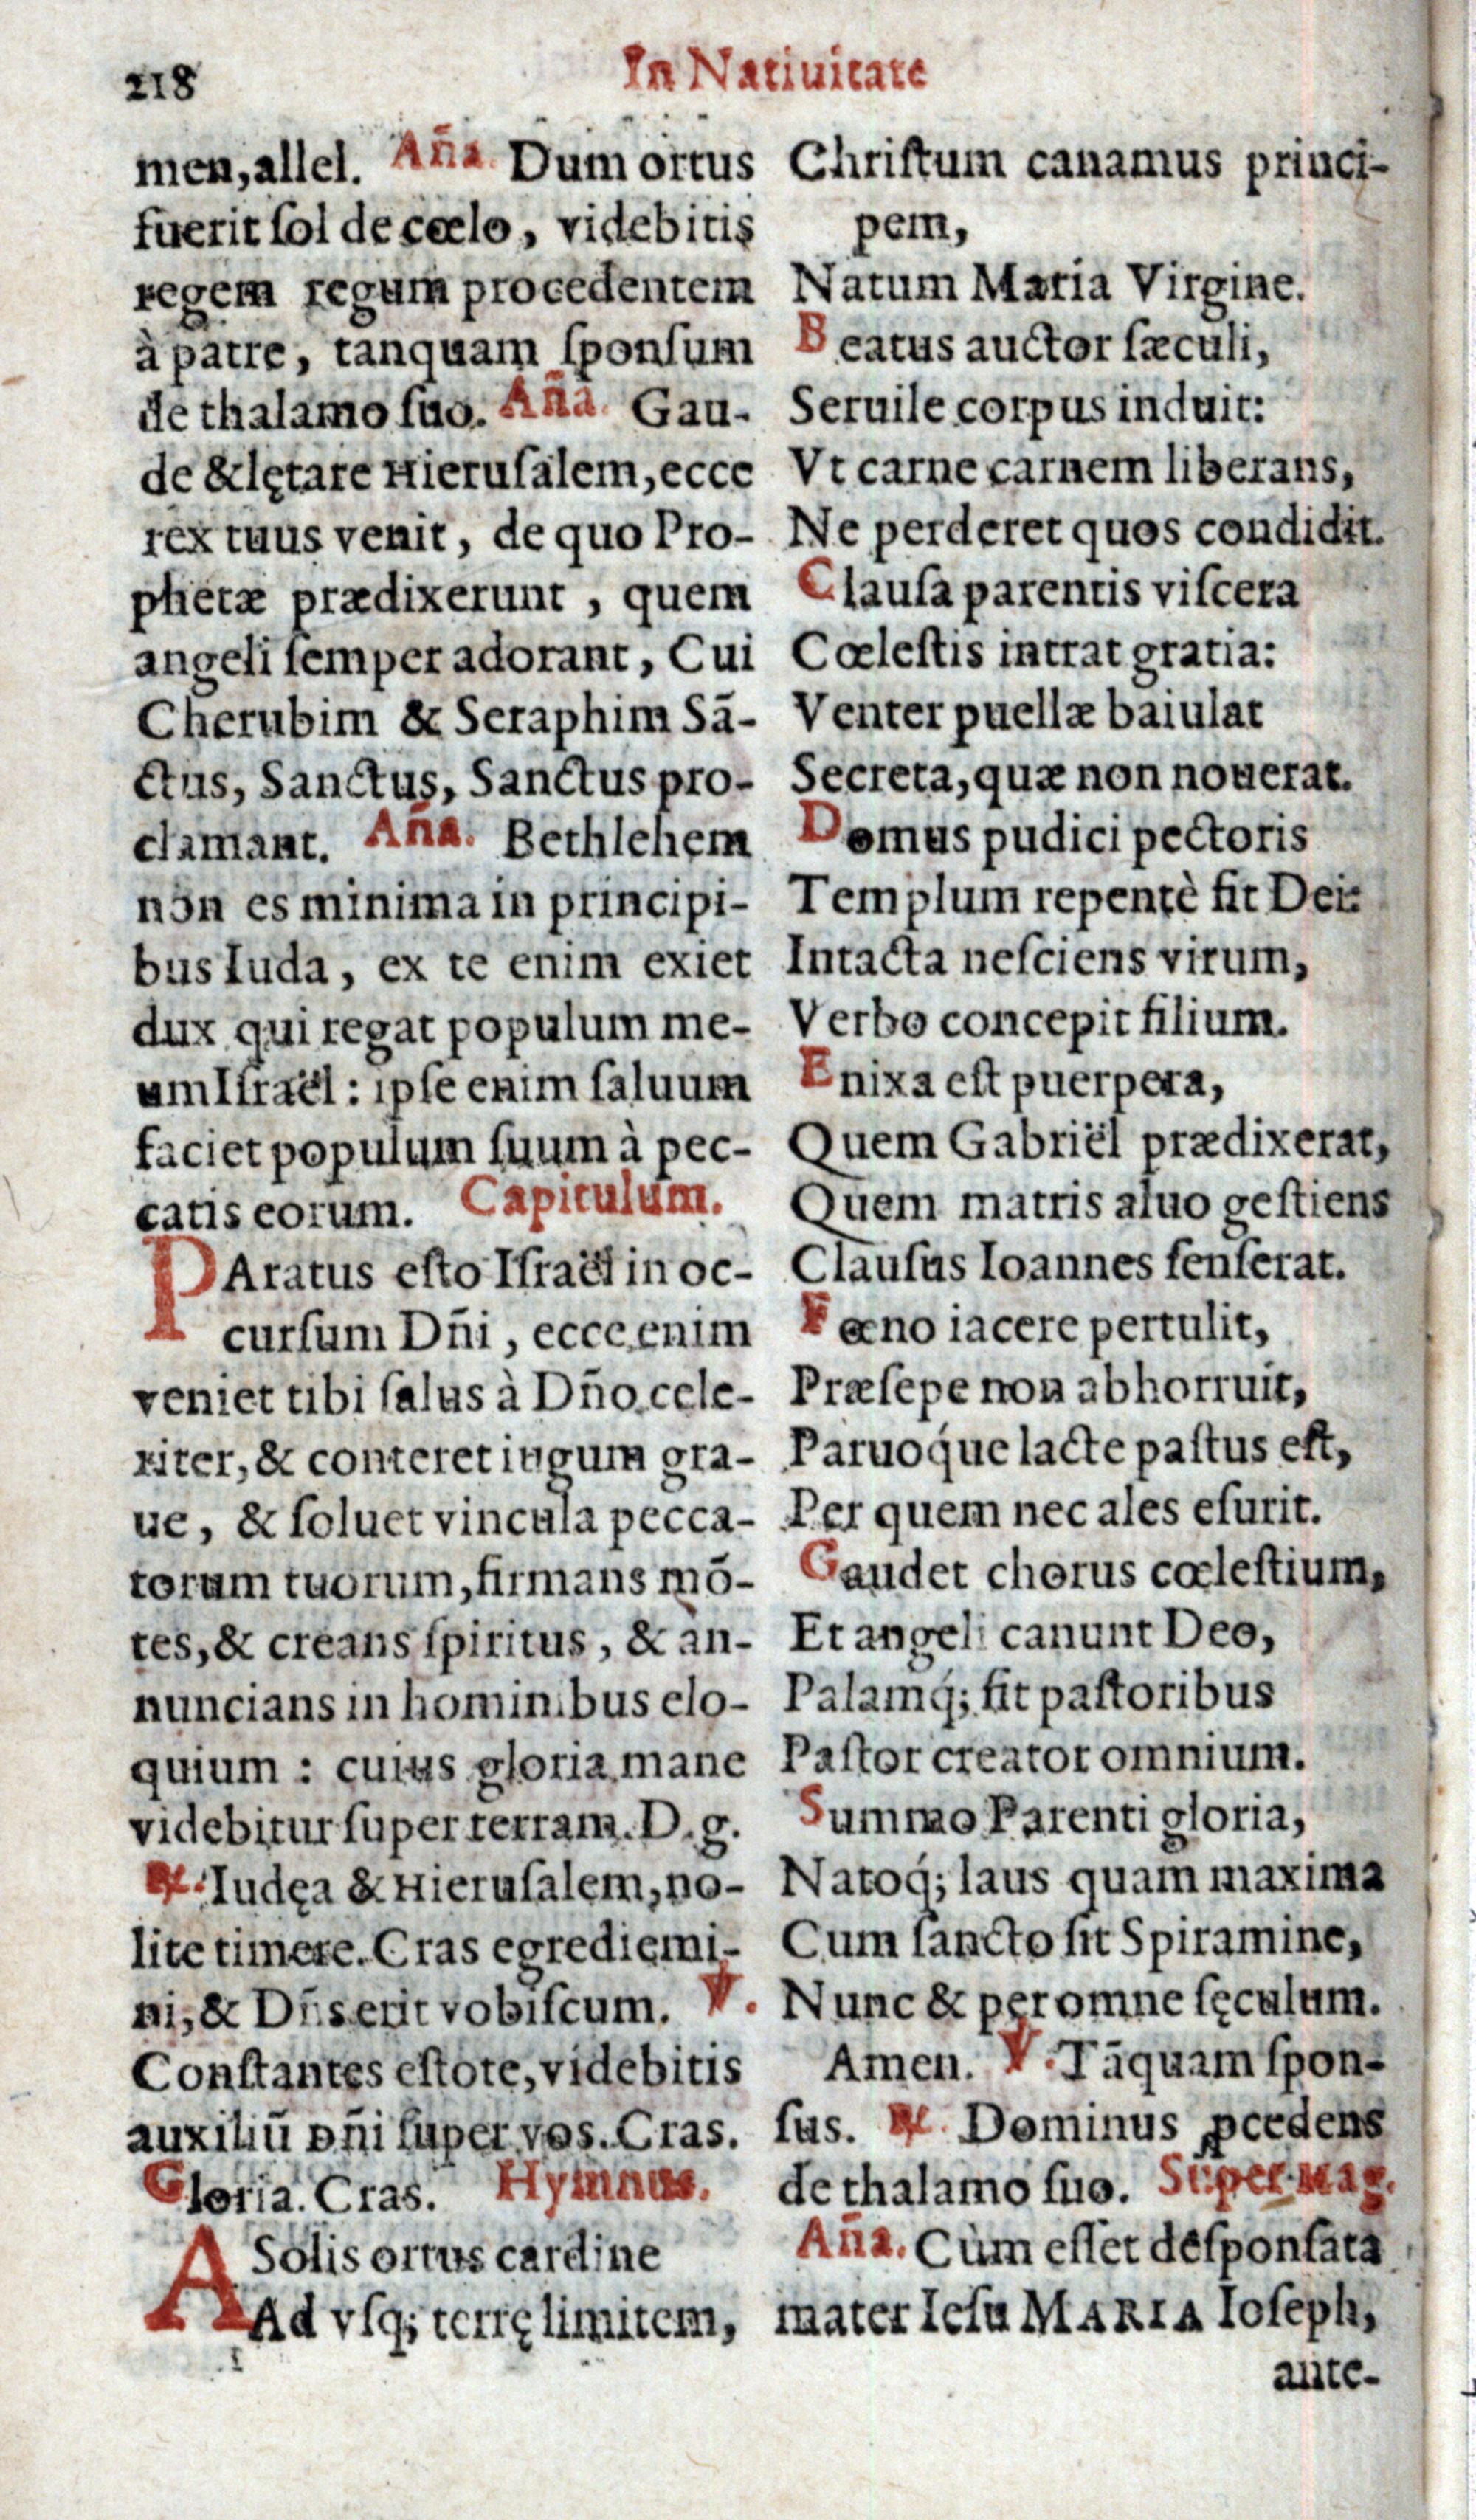 218
In Natiuitate
men, allel. Aña. Dum ortus
fuerit ſol de cœlo, videbitis
regem regum procedentem
à patre, tanquam ſponſum
de thalamo ſuo. Aña. Gau-
de & lętare Hieruſalem, ecce
rex tuus venit, de quo Pro-
phetæ prædixerunt, quem
angeli ſemper adorant, Cui
Cherubim & Seraphim Sā-
ctus, Sanctus, Sanctus pro-
clamant. Aña. Bethlehem
non es minima in principi-
bus Iuda, ex te enim exiet
dux qui regat populum me-
um Iſraël: ipſe enim ſaluum
faciet populum ſuum à pec-
catis eorum. Capitulum.
PAratus eſto Iſraël in oc-
curſum Dñi, ecce enim
veniet tibi ſalus à Dño cele-
riter, & conteret iugum gra-
ue, & ſoluet vincula pecca-
torum tuorum, firmans mō-
tes, & creans ſpiritus, & an-
nuncians in hominibus elo-
quium: cuius gloria mane
videbitur ſuper terram. D. g.
℟. Iudęa & Hieruſalem, no-
lite timere. Cras egrediemi-
ni, & Dñs erit vobiſcum. ℣.
Conſtantes eſtote, videbitis
auxiliū Dñi ſuper vos. Cras.
Gloria. Cras. Hymnus.
A Solis ortus cardine
Ad vſq; terrę limitem,
Chriſtum canamus princi-
pem,
Natum Maria Virgine.
Beatus auctor ſæculi,
Seruile corpus induit:
Vt carne carnem liberans,
Ne perderet quos condidit.
Clauſa parentis viſcera
Cœleſtis intrat gratia:
Venter puellæ baiulat
Secreta, quæ non nouerat.
Domus pudici pectoris
Templum repentè fit Dei:
Intacta neſciens virum,
Verbo concepit filium.
Enixa eſt puerpera,
Quem Gabriël prædixerat,
Quem matris aluo geſtiens
Clauſus Ioannes ſenſerat.
Fœno iacere pertulit,
Præſepe non abhorruit,
Paruoq́ue lacte paſtus eſt,
Per quem nec ales eſurit.
Gaudet chorus cœleſtium,
Et angeli canunt Deo,
Palamq́; fit paſtoribus
Paſtor creator omnium.
Summo Parenti gloria,
Natoq́; laus quam maxima
Cum ſancto ſit Spiramine,
Nunc & per omne ſęculum.
Amen. ℣. Tāquam ſpon-
ſus. ℟. Dominus ꝓcedens
de thalamo ſuo. Super Mag.
Aña. Cùm eſſet deſponſata
mater Ieſu MARIA Ioſeph,
ante-